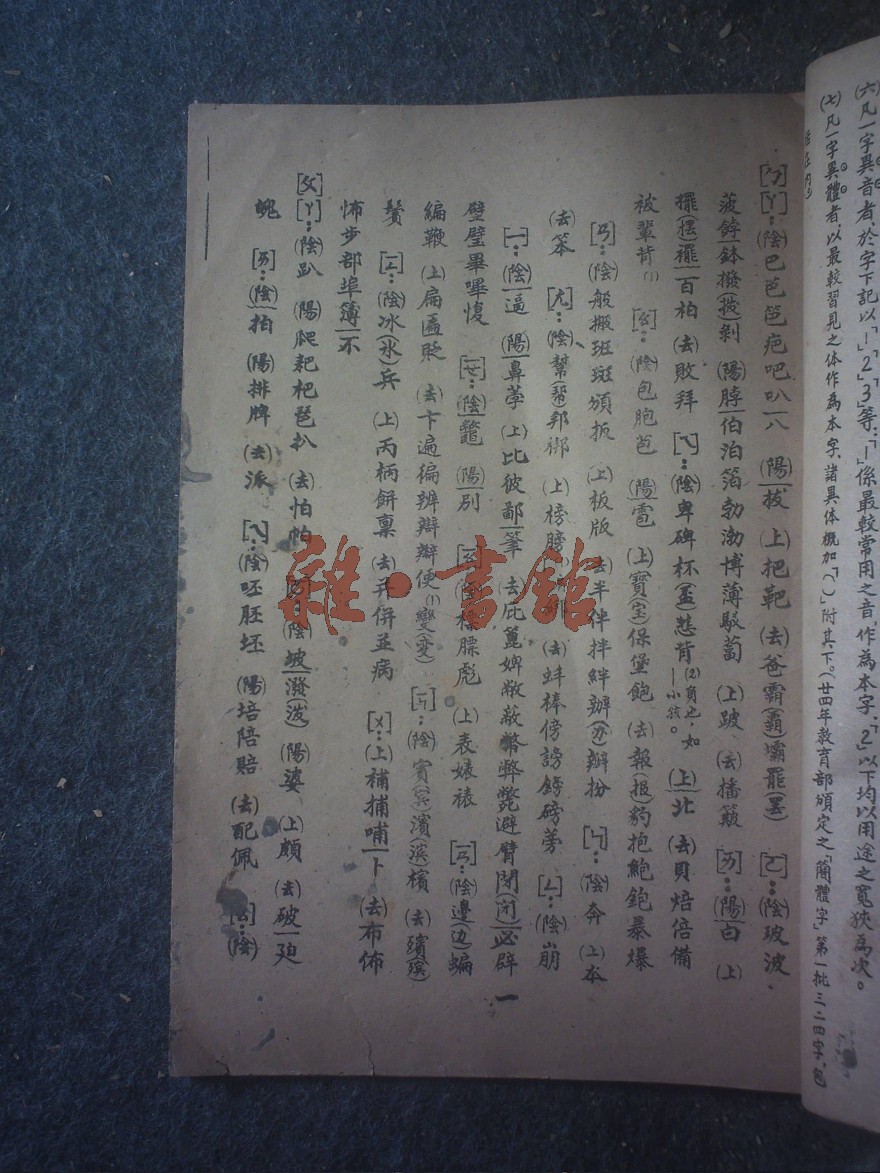 (六)凡一字異音者,於字下記以「1」「2」「3」等;「1」係最較常用之音,作為本字,「2」以下均以用途之寬狹為次。
(七)凡一字異體者,以最較習見之体作為本字,諸異体概加「()」附其下。(廿四年教育部頒定之「簡體字」第一批三二四字,包
括在內)
[ㄅ][ㄚ]:(陰)巴芭笆疤吧叭八 (陽)拔 (上)把靶 (去)爸霸(覇)壩罷(罢) [ㄛ]:(陰)玻波
菠餑缽撥(拨)剝 (陽)脖伯泊箔勃渤博薄駁蔔 (上)跛 (去)播簸 [ㄞ]:(陽)白 (上)
擺(摆)襬百柏 (去)敗拜 [ㄟ]:(陰)卑碑杯(盃)悲背(2)負也,如—小孩。 (上)北 (去)貝焙倍備
被輩背(1) [ㄠ]:(陰)包胞苞 (陽)雹 (上)寶(宝)保堡飽 (去)報(报)豹抱鮑鉋暴爆
[ㄢ]:(陰)般搬班斑頒扳 (上)板版 (去)半伴拌絆辦(办)瓣扮 [ㄣ]:(陰)奔 (上)本
(去)笨 [ㄤ]:(陰)幫(帮)邦梆 (上)榜膀 (去)蚌棒傍謗鎊磅蒡 [ㄥ]:(陰)崩
[ㄧ]:(陰)逼 (陽)鼻荸 (上)比彼鄙筆 (去)庇篦婢敝蔽幣弊斃避臂閉(闭)必辟
壁璧畢嗶愎 [ㄧㄝ]:(陰)鱉 (陽)別 [ㄧㄠ]:(陰)標膘彪 (上)表婊裱 [ㄧㄢ]:(陰)邊(边)蝙
編鞭 (上)扁匾貶 (去)卞遍徧辨辯辮便(1)變(变) [ㄧㄣ]:(陰)賓(宾)濱(滨)檳 (去)殯(殡)
鬢 [ㄧㄥ]:(陰)冰(氷)兵 (上)丙柄餅稟 (去)并併並病 [ㄨ]:(上)補捕哺卜 (去)布佈
怖步部埠簿不
[ㄆ][ㄚ]:(陰)趴 (陽)爬耙杷琶扒 (去)怕帕 [ㄛ]:(陰)坡潑(泼) (陽)婆 (上)頗 (去)破迫
魄 [ㄞ]:(陰)拍 (陽)排牌 (去)派 [ㄟ]:(陰)呸胚坯 (陽)培陪賠 (去)配佩 [ㄠ]:(陰)
一
雜·書館